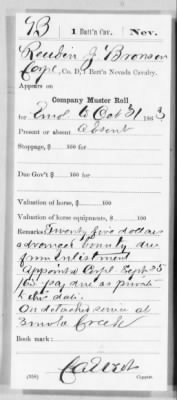 B | 1 Batt'n Cav. | Nev.
Reuben J Bronson
Corpl, Co. D, 1 Batt'n Nevada Cavalry.
Appears on
Company Muster Roll
for Enrol to Oct 31, 1863.
Present or absent Absent
Stoppage, $ 100 for
Due Gov't $ 100 for
Valuation of horse, $ 100
Valuation of horse equipments, $ 100
Remarks: Twenty five dollars
advance bounty due
from Enlistment
Appointed Corpl Sept 25
/63 pay due as private
to this date.
On detached service at
Smoke Creek
Book mark:
(358)
Copyist.